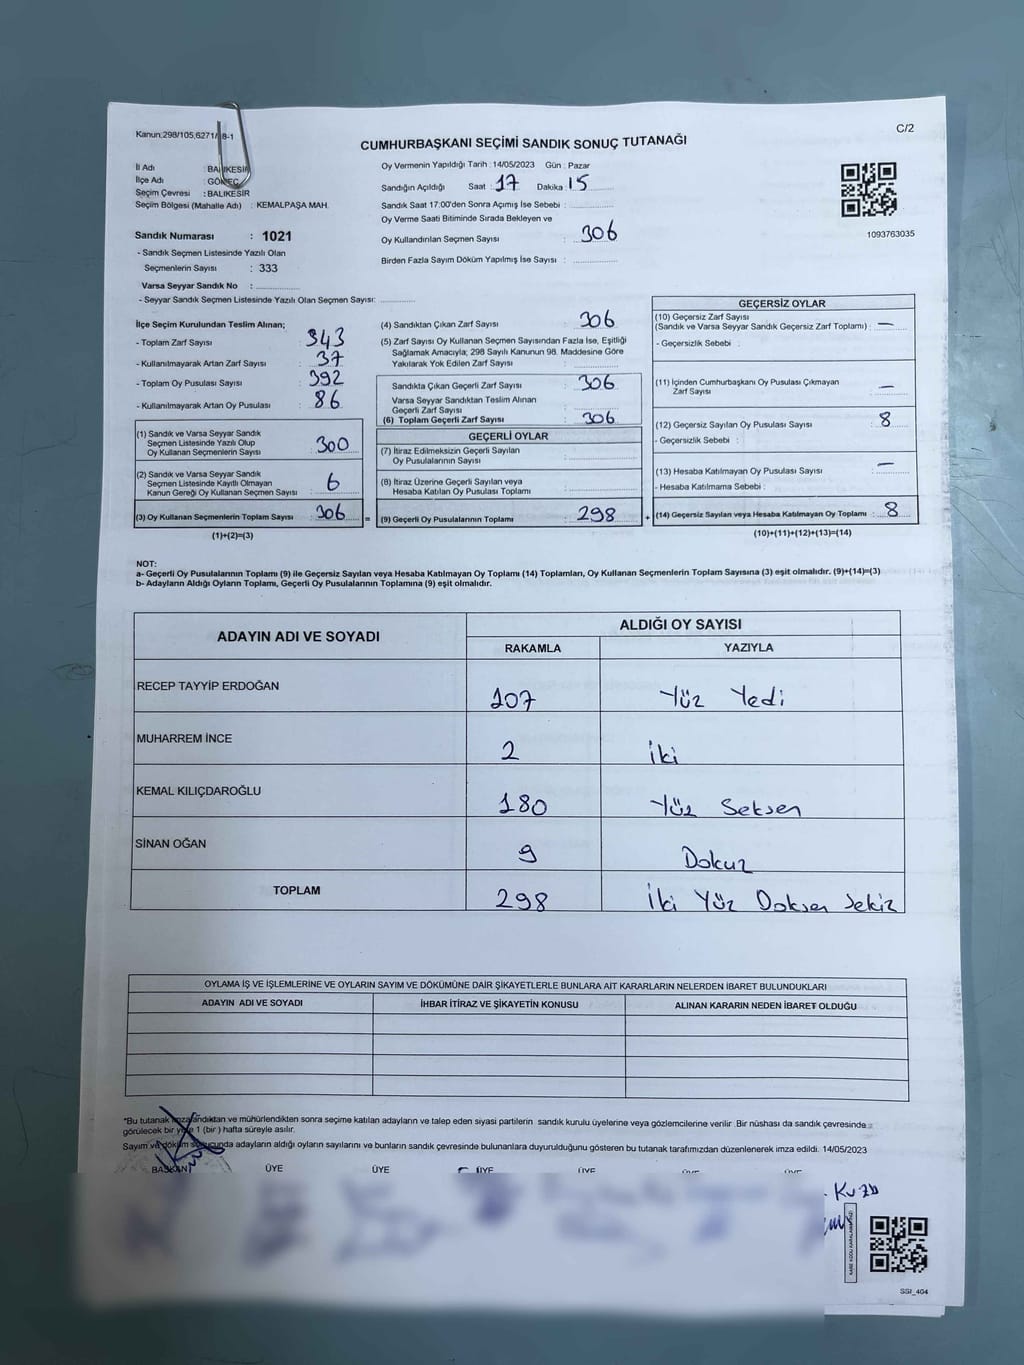 Kanun:298/105,6271/ 8-1
C/2
CUMHURBAŞKANI SEÇİMİ SANDIK SONUÇ TUTANAĞI
İl Adı : BALIKESİR
İlçe Adı : GÖMEÇ
Seçim Çevresi : BALIKESİR
Seçim Bölgesi (Mahalle Adı) : KEMALPAŞA MAH.
Sandık Numarası : 1021
- Sandık Seçmen Listesinde Yazılı Olan
Seçmenlerin Sayısı : 333
Varsa Seyyar Sandık No :
- Seyyar Sandık Seçmen Listesinde Yazılı Olan Seçmen Sayısı:
Oy Vermenin Yapıldığı Tarih : 14/05/2023 Gün : Pazar
Sandığın Açıldığı Saat : 17 Dakika : 15
Sandık Saat 17:00'den Sonra Açımış İse Sebebi :
Oy Verme Saati Bitiminde Sırada Bekleyen ve
Oy Kullandırılan Seçmen Sayısı : 306
Birden Fazla Sayım Döküm Yapılmış İse Sayısı :
1093763035
İlçe Seçim Kurulundan Teslim Alınan;
- Toplam Zarf Sayısı : 343
- Kullanılmayarak Artan Zarf Sayısı : 37
- Toplam Oy Pusulası Sayısı : 392
- Kullanılmayarak Artan Oy Pusulası : 86
(1) Sandık ve Varsa Seyyar Sandık
Seçmen Listesinde Yazılı Olup
Oy Kullanan Seçmenlerin Sayısı : 300
(2) Sandık ve Varsa Seyyar Sandık
Seçmen Listesinde Kayıtlı Olmayan
Kanun Gereği Oy Kullanan Seçmen Sayısı : 6
(3) Oy Kullanan Seçmenlerin Toplam Sayısı : 306
(1)+(2)=(3)
(4) Sandıktan Çıkan Zarf Sayısı : 306
(5) Zarf Sayısı Oy Kullanan Seçmen Sayısından Fazla İse, Eşitliği
Sağlamak Amacıyla; 298 Sayılı Kanunun 98. Maddesine Göre
Yakılarak Yok Edilen Zarf Sayısı :
Sandıkta Çıkan Geçerli Zarf Sayısı : 306
Varsa Seyyar Sandıktan Teslim Alınan
Geçerli Zarf Sayısı :
(6) Toplam Geçerli Zarf Sayısı : 306
GEÇERLİ OYLAR
(7) İtiraz Edilmeksizin Geçerli Sayılan
Oy Pusulalarının Sayısı :
(8) İtiraz Üzerine Geçerli Sayılan veya
Hesaba Katılan Oy Pusulası Toplamı :
= (9) Geçerli Oy Pusulalarının Toplamı : 298
GEÇERSİZ OYLAR
(10) Geçersiz Zarf Sayısı
(Sandık ve Varsa Seyyar Sandık Geçersiz Zarf Toplamı) : —
- Geçersizlik Sebebi :
(11) İçinden Cumhurbaşkanı Oy Pusulası Çıkmayan
Zarf Sayısı : —
(12) Geçersiz Sayılan Oy Pusulası Sayısı : 8
- Geçersizlik Sebebi :
(13) Hesaba Katılmayan Oy Pusulası Sayısı : —
- Hesaba Katılmama Sebebi :
+ (14) Geçersiz Sayılan veya Hesaba Katılmayan Oy Toplamı : 8
(10)+(11)+(12)+(13)=(14)
NOT:
a- Geçerli Oy Pusulalarının Toplamı (9) ile Geçersiz Sayılan veya Hesaba Katılmayan Oy Toplamı (14) Toplamları, Oy Kullanan Seçmenlerin Toplam Sayısına (3) eşit olmalıdır. (9)+(14)=(3)
b- Adayların Aldığı Oyların Toplamı, Geçerli Oy Pusulalarının Toplamına (9) eşit olmalıdır.
ADAYIN ADI VE SOYADI ALDIĞI OY SAYISI
RAKAMLA YAZIYLA
RECEP TAYYİP ERDOĞAN 107 Yüz Yedi
MUHARREM İNCE 2 İki
KEMAL KILIÇDAROĞLU 180 Yüz Seksen
SİNAN OĞAN 9 Dokuz
TOPLAM 298 İki Yüz Doksan Sekiz
OYLAMA İŞ VE İŞLEMLERİNE VE OYLARIN SAYIM VE DÖKÜMÜNE DAİR ŞİKAYETLERLE BUNLARA AİT KARARLARIN NELERDEN İBARET BULUNDUKLARI
ADAYIN ADI VE SOYADI İHBAR İTİRAZ VE ŞİKAYETİN KONUSU ALINAN KARARIN NEDEN İBARET OLDUĞU
"Bu tutanak imzalandıktan ve mühürlendikten sonra seçime katılan adayların ve talep eden siyasi partilerin sandık kurulu üyelerine veya gözlemcilerine verilir .Bir nüshası da sandık çevresinde
görülecek bir yere 1 (bir ) hafta süreyle asılır.
Sayım ve döküm sonucunda adayların aldığı oyların sayılarını ve bunların sandık çevresinde bulunanlara duyurulduğunu gösteren bu tutanak tarafımızdan düzenlenerek imza edildi. 14/05/2023
BAŞKAN ÜYE ÜYE ÜYE ÜYE ÜYE ÜYE
SSI_404